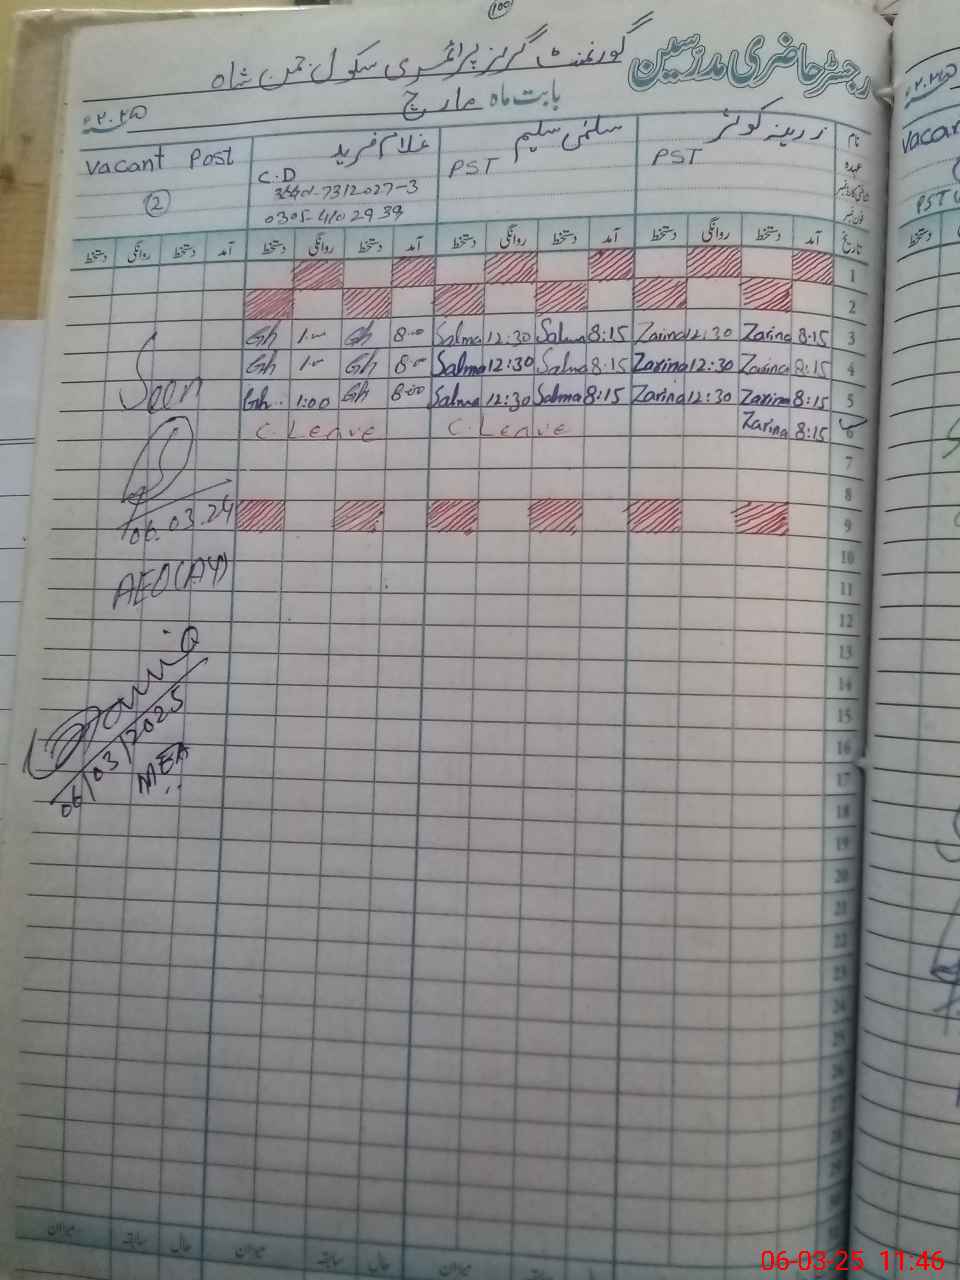 100
رجسٹر حاضری مدرسین گورنمنٹ گرلز پرائمری سکول جمن شاہ
بابت ماہ مارچ ۲۰۲۵ء
نام زرینہ کوثر سلمٰی سلیم غلام فرید Vacant Post
عہدہ PST PST C.D
شناختی کارڈ نمبر -7312027-3 2
فون نمبر 0305-4102939
تاریخ آمد دستخط روانگی دستخط آمد دستخط روانگی دستخط آمد دستخط روانگی دستخط آمد دستخط روانگی دستخط
1
2
Gh 1-00 Gh 8-00 Salma 12:30 Salma 8:15 Zarina 12:30 Zarina 8:15 3
Gh 1-00 Gh 8-00 Salma 12:30 Salma 8:15 Zarina 12:30 Zarina 8:15 4
Gh 1:00 Gh 8:00 Salma 12:30 Salma 8:15 Zarina 12:30 Zarina 8:15 5
C. Leave C. Leave Zarina 8:15 6
7
8
9
10
11
12
13
14
15
16
17
18
19
20
21
22
23
24
25
26
27
28
29
30
Seen
06.03.24
AEO(AY)
06/03/2025
MEA
میزان سابقہ حال میزان سابقہ حال میزان سابقہ حال
۲۰۲۵ء
Vacan
PST
دستخط
06-03-25 11:46